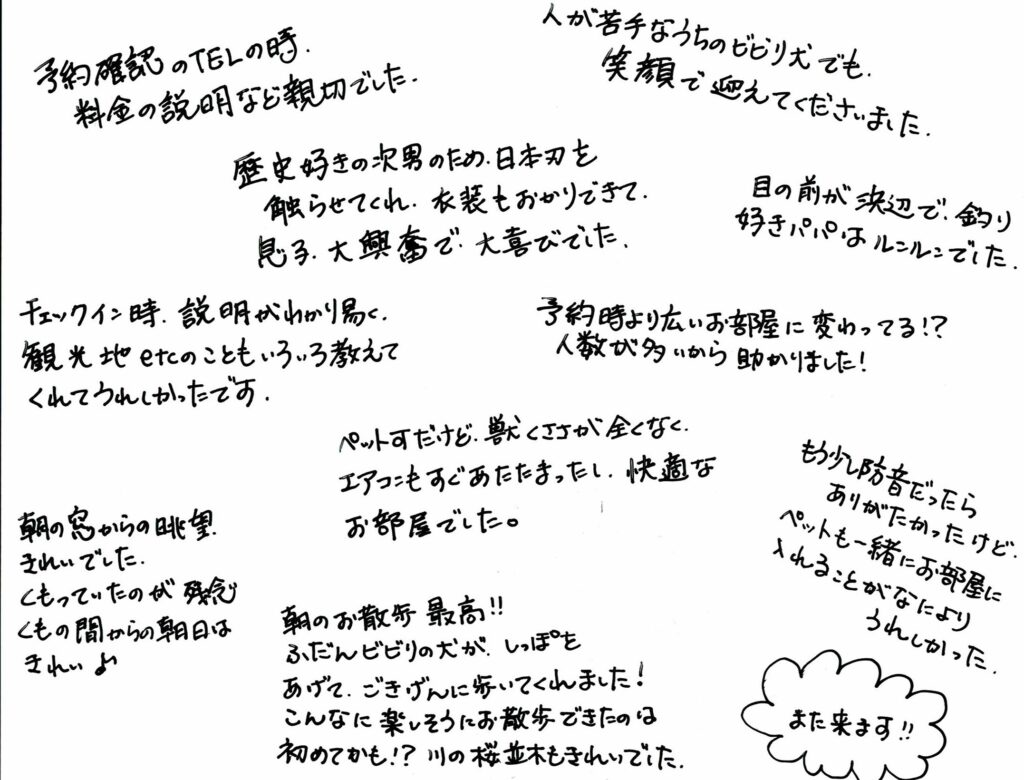 予約確認のTELの時.
料金の説明など親切でした.
人が苦手なうちのビビリ犬でも.
笑顔で迎えてくださいました.
歴史好きの次男のため.日本刃を
触らせてくれ.衣装もおかりできて.
息子.大興奮で.大喜びでした.
目の前が浜辺で.釣り
好きパパはルンルンでした.
チェックイン時.説明がわかり易く.
観光地etcのこともいろいろ教えて
くれてうれしかったです.
予約時より広いお部屋に変わってる!?
人数が多いから助かりました!
ペット可だけど.獣くささが全くなく.
エアコンもすぐあたたまったし.快適な
お部屋でした。
もう少し防音だったら
ありがたかったけど.
ペットも一緒にお部屋に
入れることがなにより
うれしかった.
朝の窓からの眺望.
きれいでした.
くもっていたのが残念
くもの間からの朝日は
きれい♪
朝のお散歩最高!!
ふだんビビリの犬が.しっぽを
あげて.ごきげんに歩いてくれました!
こんなに楽しそうにお散歩できたのは
初めてかも!?川の桜並木もきれいでした.
また来ます!!